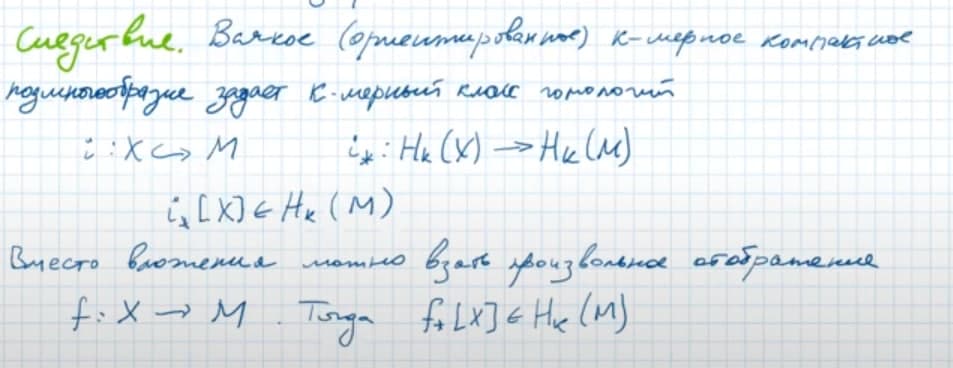 Следствие. Всякое (ориентированное) k-мерное компактное
подмногообразие задает k-мерный класс гомологий
i : X ↪ M i_* : H_k(X) → H_k(M)
i_*[X] ∈ H_k(M)
Вместо вложения можно взять произвольное отображение
f : X → M . Тогда f_*[X] ∈ H_k(M)